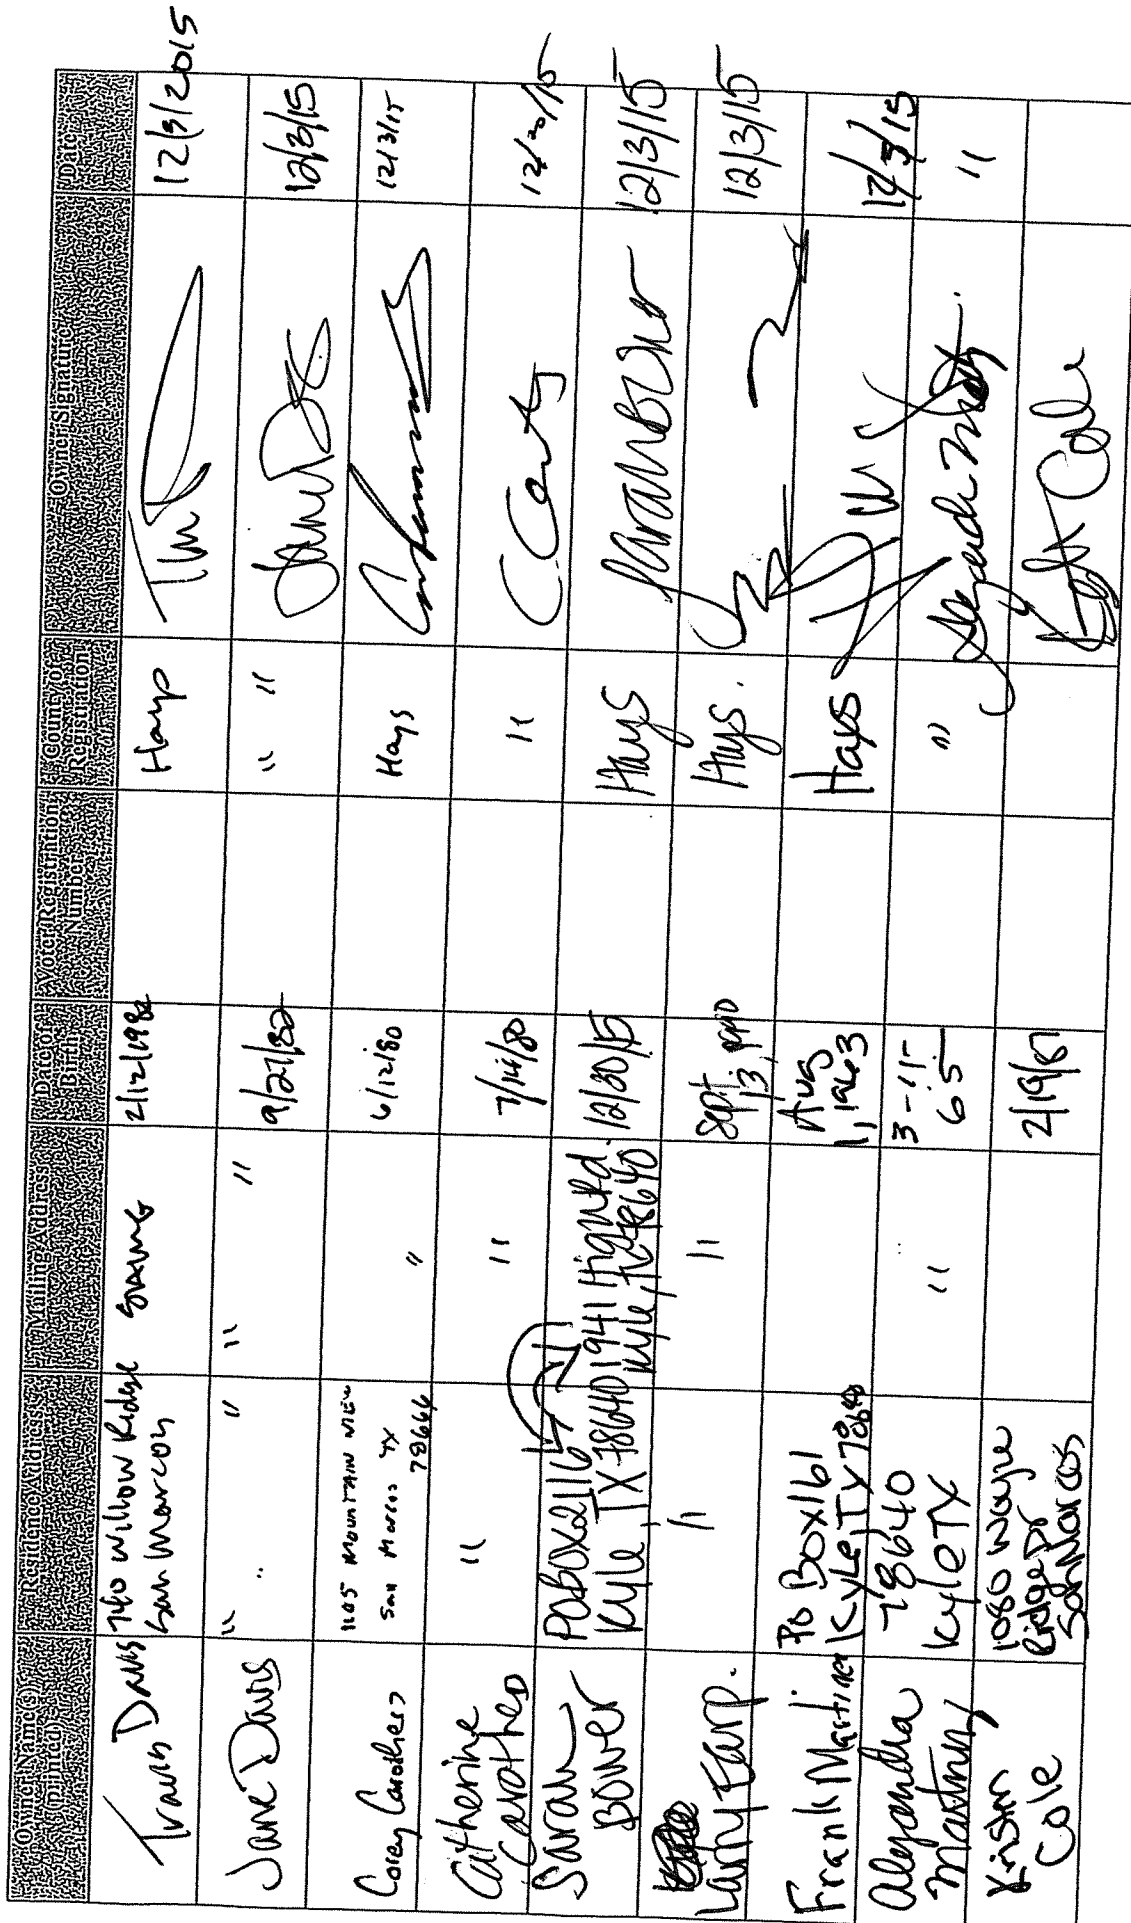 Owner Name(s) (printed) Residence Address Mailing Address Date of Birth Voter Registration Number County of Registration Owner Signature Date
Travis Davis 740 Willow Ridge San Marcos Same 2/12/1982 Hays 12/3/2015
Jane Davis " " " " " 9/27/82 " " 12/3/15
Corey Carothers 1105 MOUNTAIN VIEW San Marcos TX 78666 " 6/12/80 Hays 12/3/15
Catherine Carothers " " 7/14/80 " 12/20/15
Sarah Bower PO BOX 2116 Kyle, TX 78640 1941 High Rd. Kyle, TX 78640 12/30/15 Hays Sarah Bower 12/3/15
Larry Earp. " " Sept. 13, Hays. 12/3/15
Frank Martinez PO Box 161 Kyle TX 78640 Aug 1, 1963 Hays 12/3/15
Alejandra Martinez 78640 Kyle TX " 3-11-65 " "
Kristin Cole 1080 Wayne Ridge Dr San Marcos 2/19/87 Cole